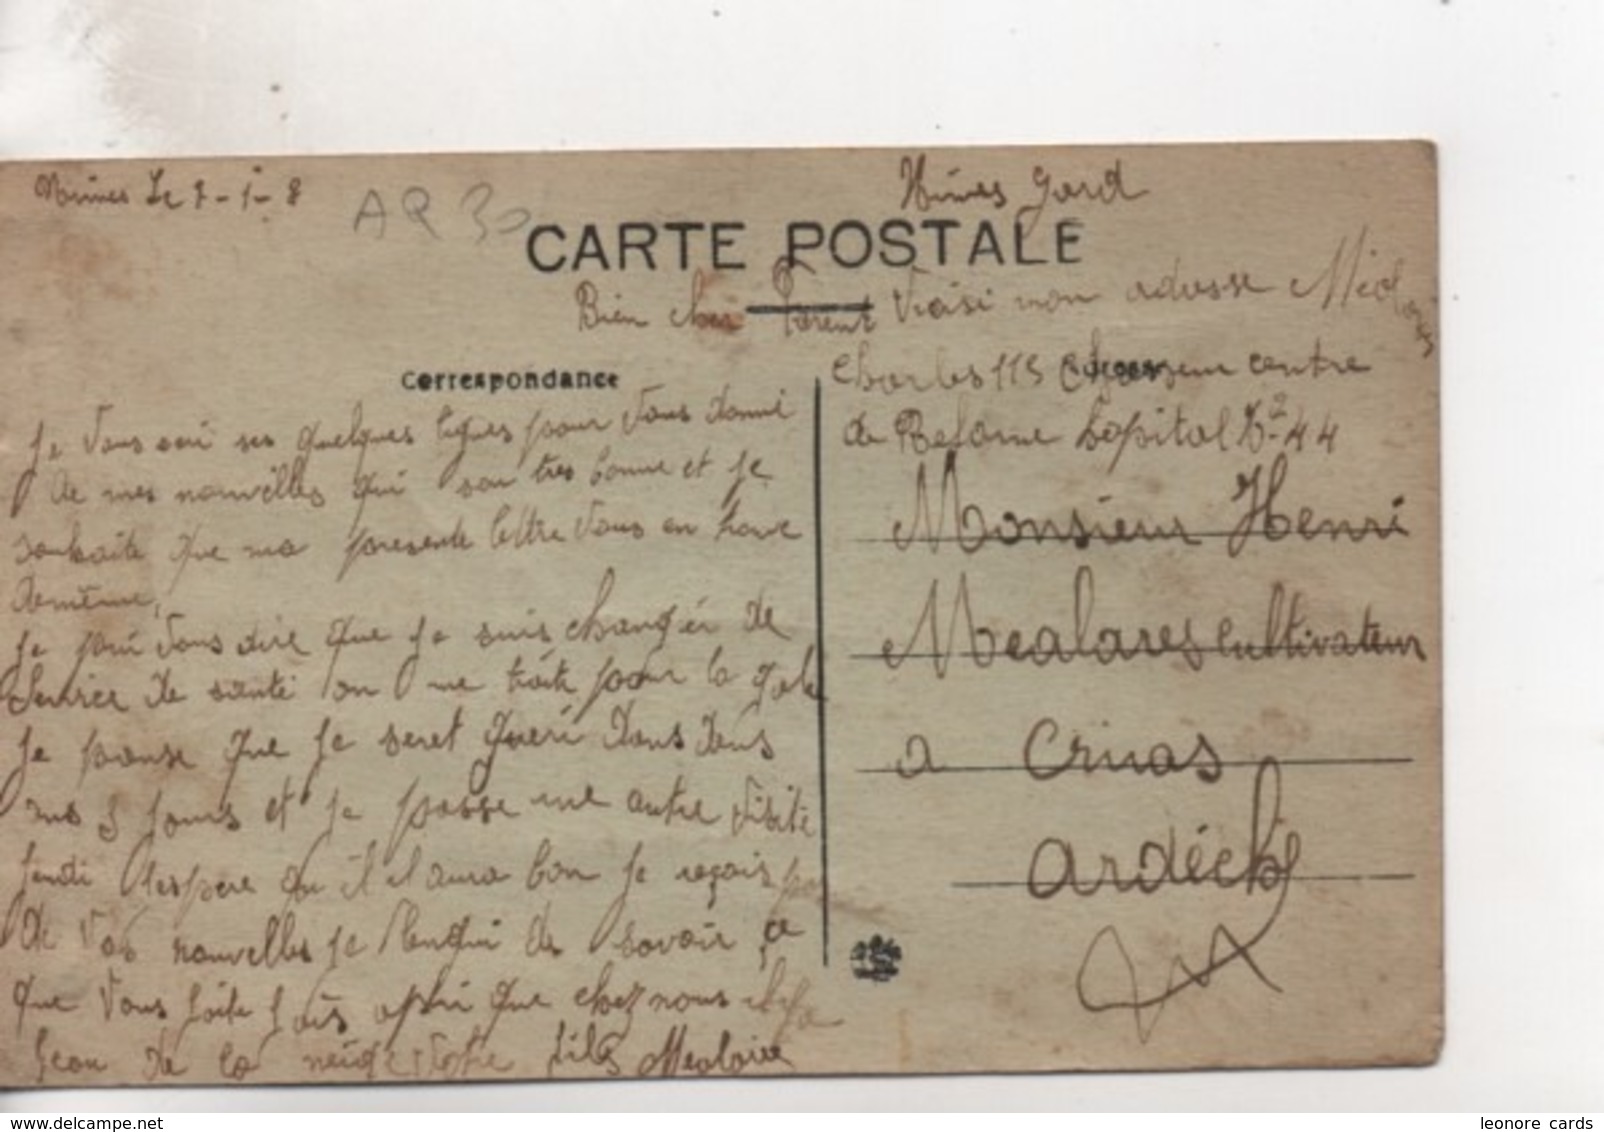 Nimes Le 7-1-8
AR 30
Nimes Gard
CARTE POSTALE
Bien cher Parent Voisi mon adresse Méalares
Correspondance
Charles 115 Chasseur centre
de Reforme hopital 44
Monsieur Henri
Mealares cultivateur
a Cruas
Ardéche
Je vous ecri ses quelques lignes pour vous donné
de mes nouvelles qui son tres bonne et je
souhaite que ma presente lettre vous en trouve
de même,
Je pui vous dire que je suis changér de
service de santé on me traite pour la gale
Je panse que je seret guéri dans dans
une 8 jours et je passe une autre visite
jeudi j'espere qu'il l aura bon je reçois pa
de vos nouvelles je de savoir ce
que vous faite que chez nous
de la neige votre fils Mealares
leonore cards